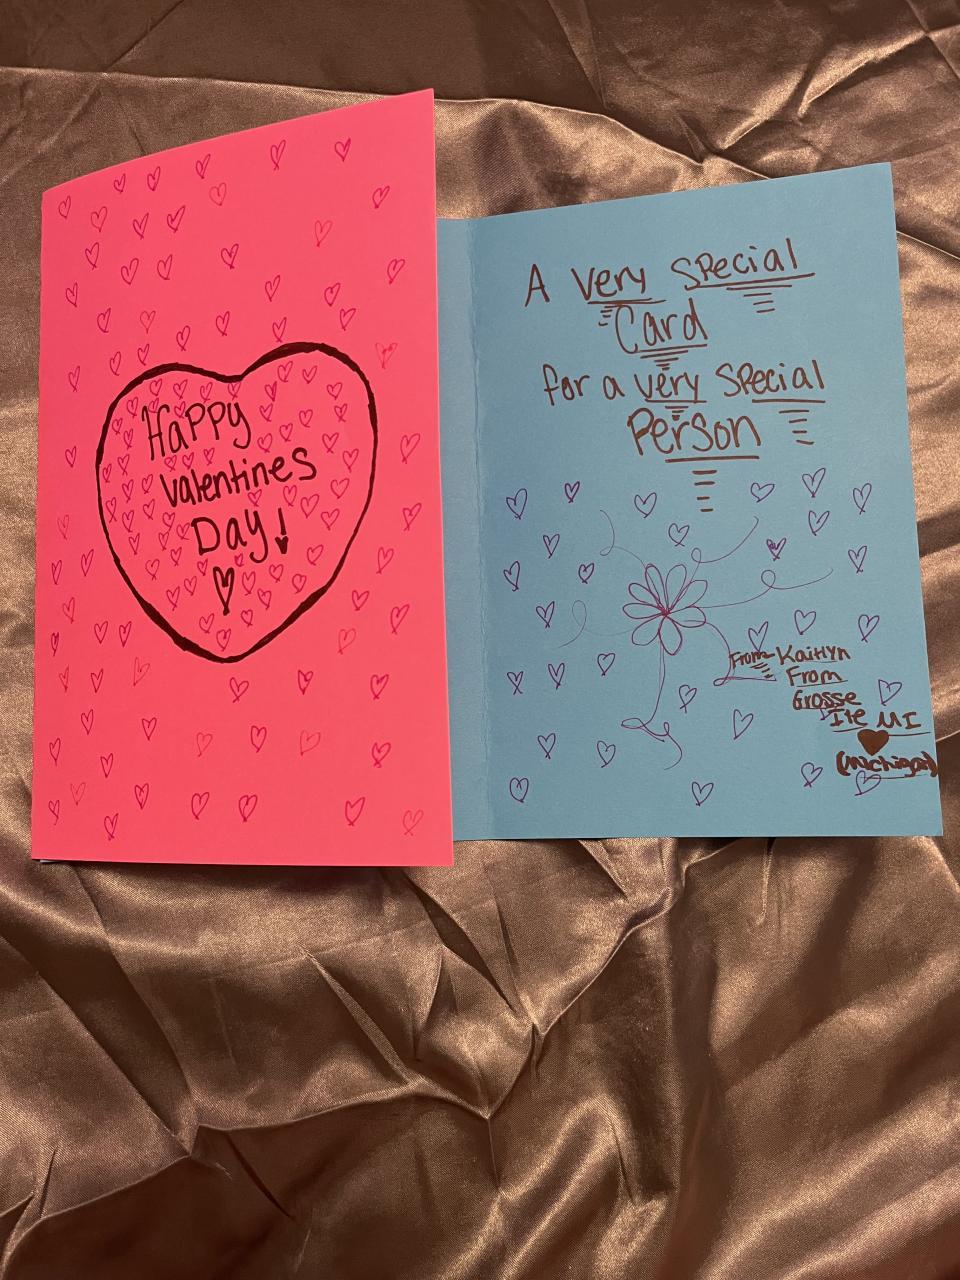 Happy
Valentines
Day!
A very special
Card
for a very special
Person
From Kaitlyn
From
Grosse
Ile MI
(Michigan)